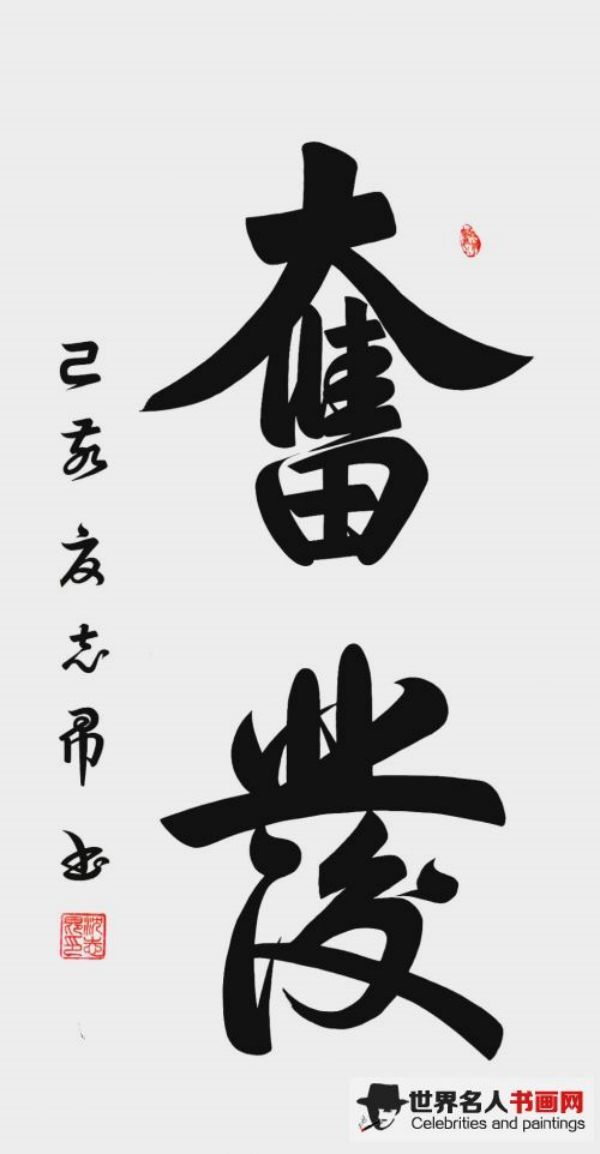 奮發
己亥夏志昂书
世界名人书画网
Celebrities and paintings